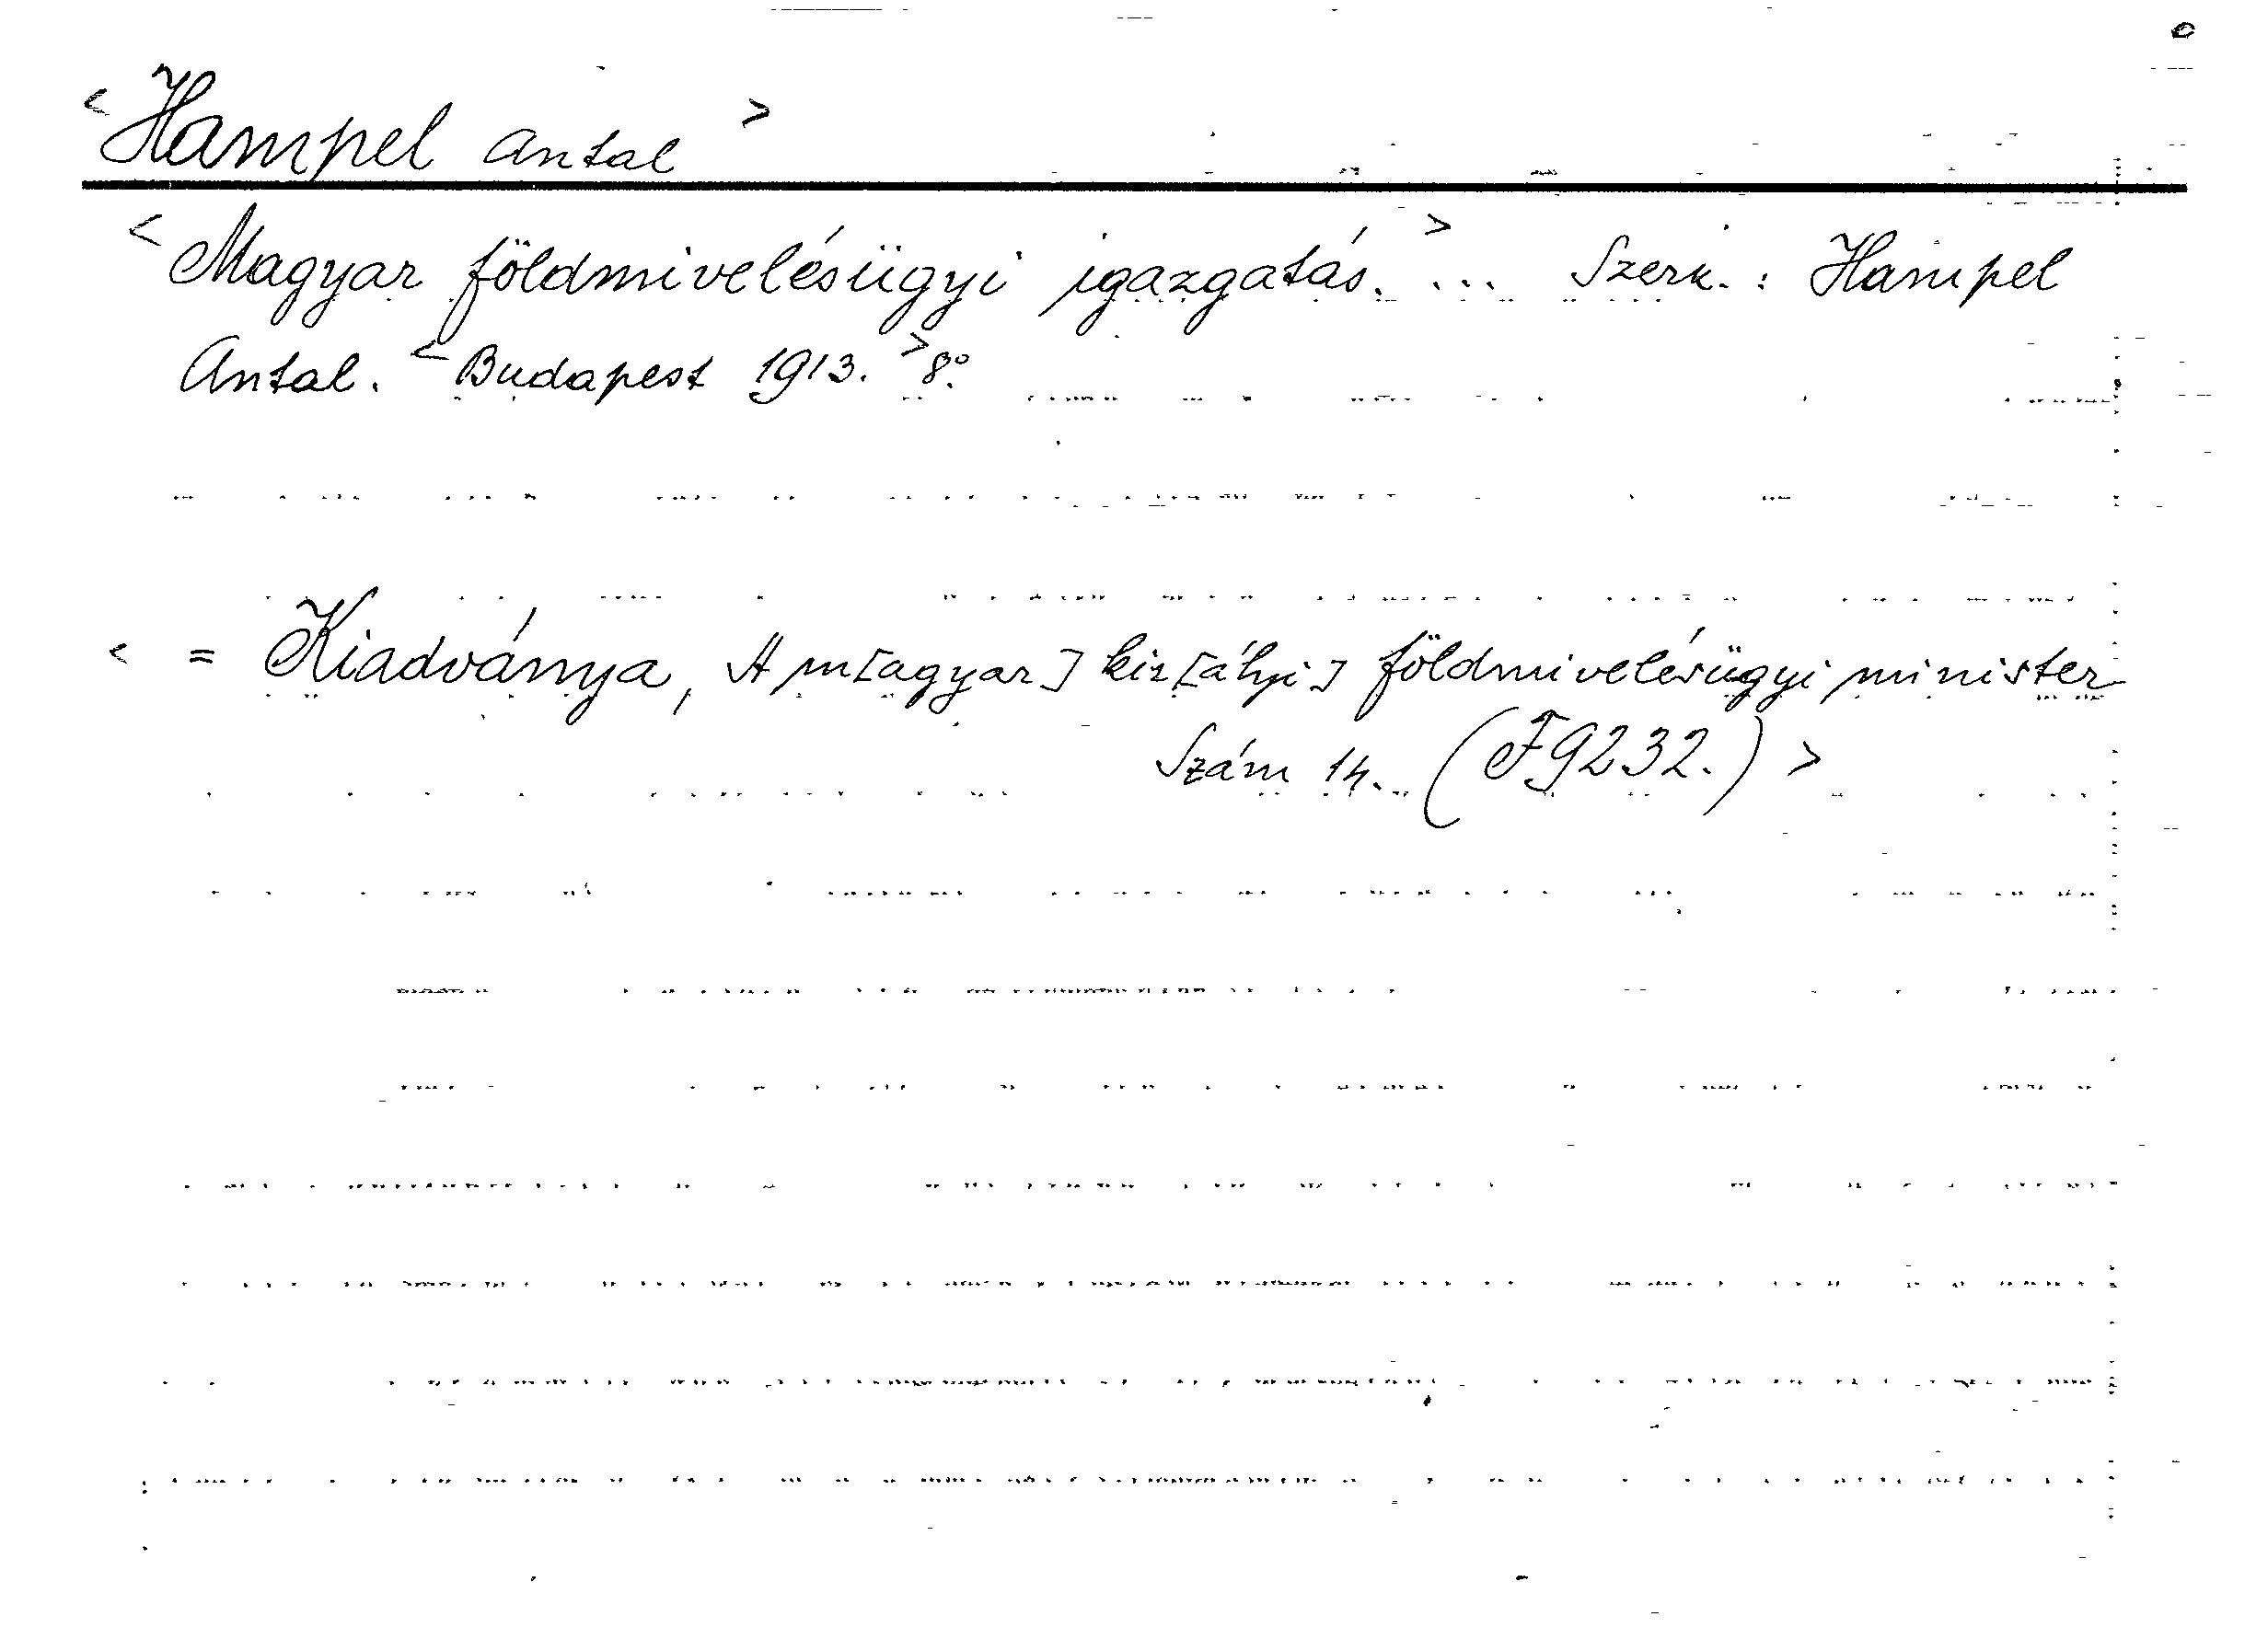 <Hampel Antal>
<Magyar földmivelésügyi igazgatás.> ... Szerk.: Hampel
Antal. <Budapest 1913.> 8º.
< = Kiadványa, A m[agyar] kir[ályi] földmivelésügyi minister
Szám 14. (F9232.) >